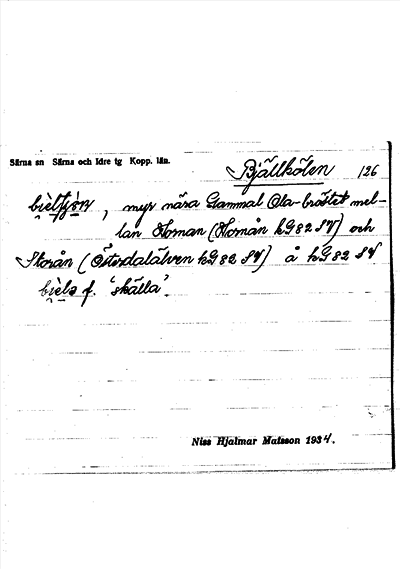 Särna sn Särna och Idre tg Kopp. län.
Bjällkölen 126
, myr nära Gammal Ola-bröstet mel-
lan Homan (Homån hG82 SV) och
Storån (Österdalälven hG82 SV) å hG82 SV
f. 'skälla'.
Niss Hjalmar Matsson 1934.